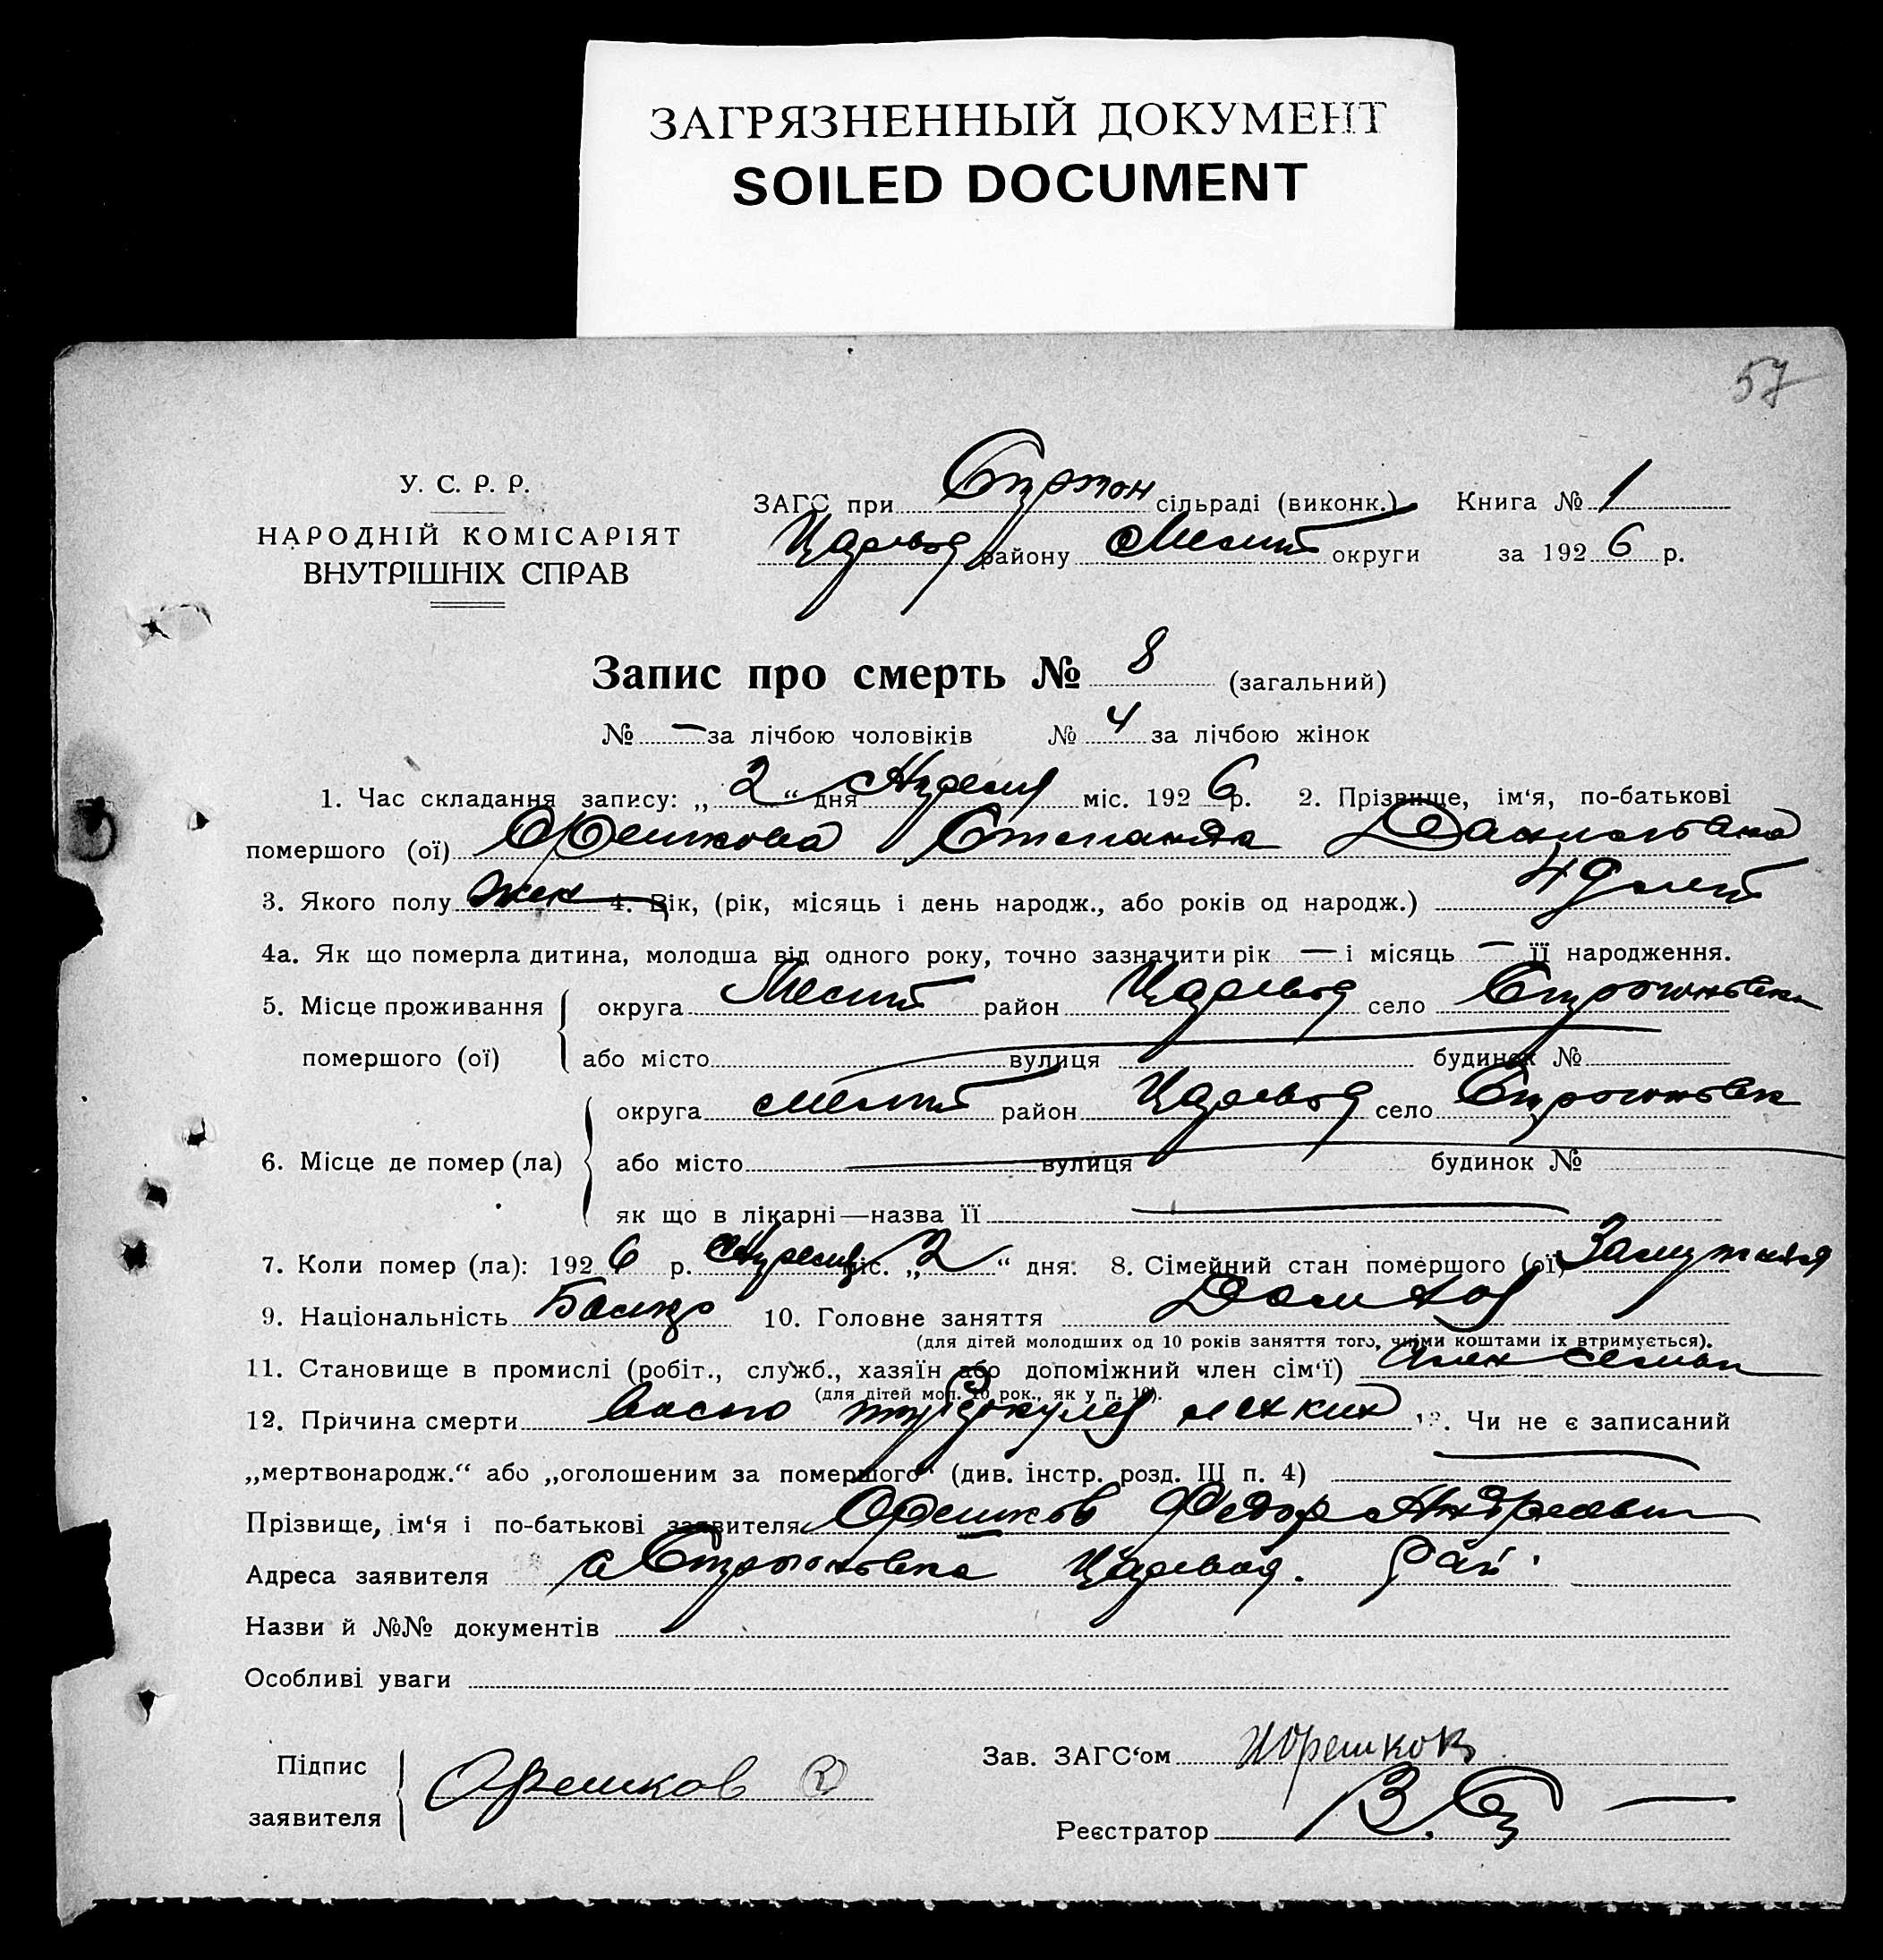 ЗАГРЯЗНЕННЫЙ ДОКУМЕНТ
SOILED DOCUMENT
57
У. С. Р. Р.
НАРОДНІЙ КОМІСАРІЯТ
ВНУТРІШНІХ СПРАВ
ЗАГС при Строгон сільраді (виконк.) Книга № 1
Царевод району Мелит округи за 192 6 р.
Запис про смерть № 8 (загальний)
№ — за лічбою чоловіків № 4 за лічбою жінок
1. Час складання запису: „ 2 “ дня Апреля міс. 192 6 р. 2. Прізвище, ім‘я, по-батькові
помершого (ої) Орешкова Степанида Даниловна
3. Якого полу жен 4. Вік, (рік, місяць і день народж., або років од народж.) 49 лет
4а. Як що померла дитина, молодша від одного року, точно зазначити рік — і місяць — її народження.
5. Місце проживання округа Мелит район Царевод село Строгоновка
помершого (ої) або місто вулиця будинок №
округа Мелит район Царевод село Строгоновк
6. Місце де помер (ла) або місто вулиця будинок №
як що в лікарні—назва її
7. Коли помер (ла): 192 6 р. Апреля міс. „ 2 “ дня: 8. Сімейний стан помершого (ої) Замужняя
9. Національність 10. Головне заняття Домхоз
(для дітей молодших од 10 років заняття того, чиїми коштами їх втримується).
11. Становище в промислі (робіт., служб., хазяїн або допоміжний член сім‘ї) член семьи
(для дітей мол. 10 рок., як у п. 10).
12. Причина смерти легких 13. Чи не є записаний
„мертвонародж.“ або „оголошеним за помершого“ (див. інстр. розд. III п. 4)
Прізвище, ім‘я і по-батькові заявителя Орешков Федор Андреевич
Адреса заявителя с Строгоновка Царевод. Рай.
Назви й №№ документів
Особливі уваги
Підпис
заявителя Орешков
Зав. ЗАГС‘ом И Орешков
Реєстратор